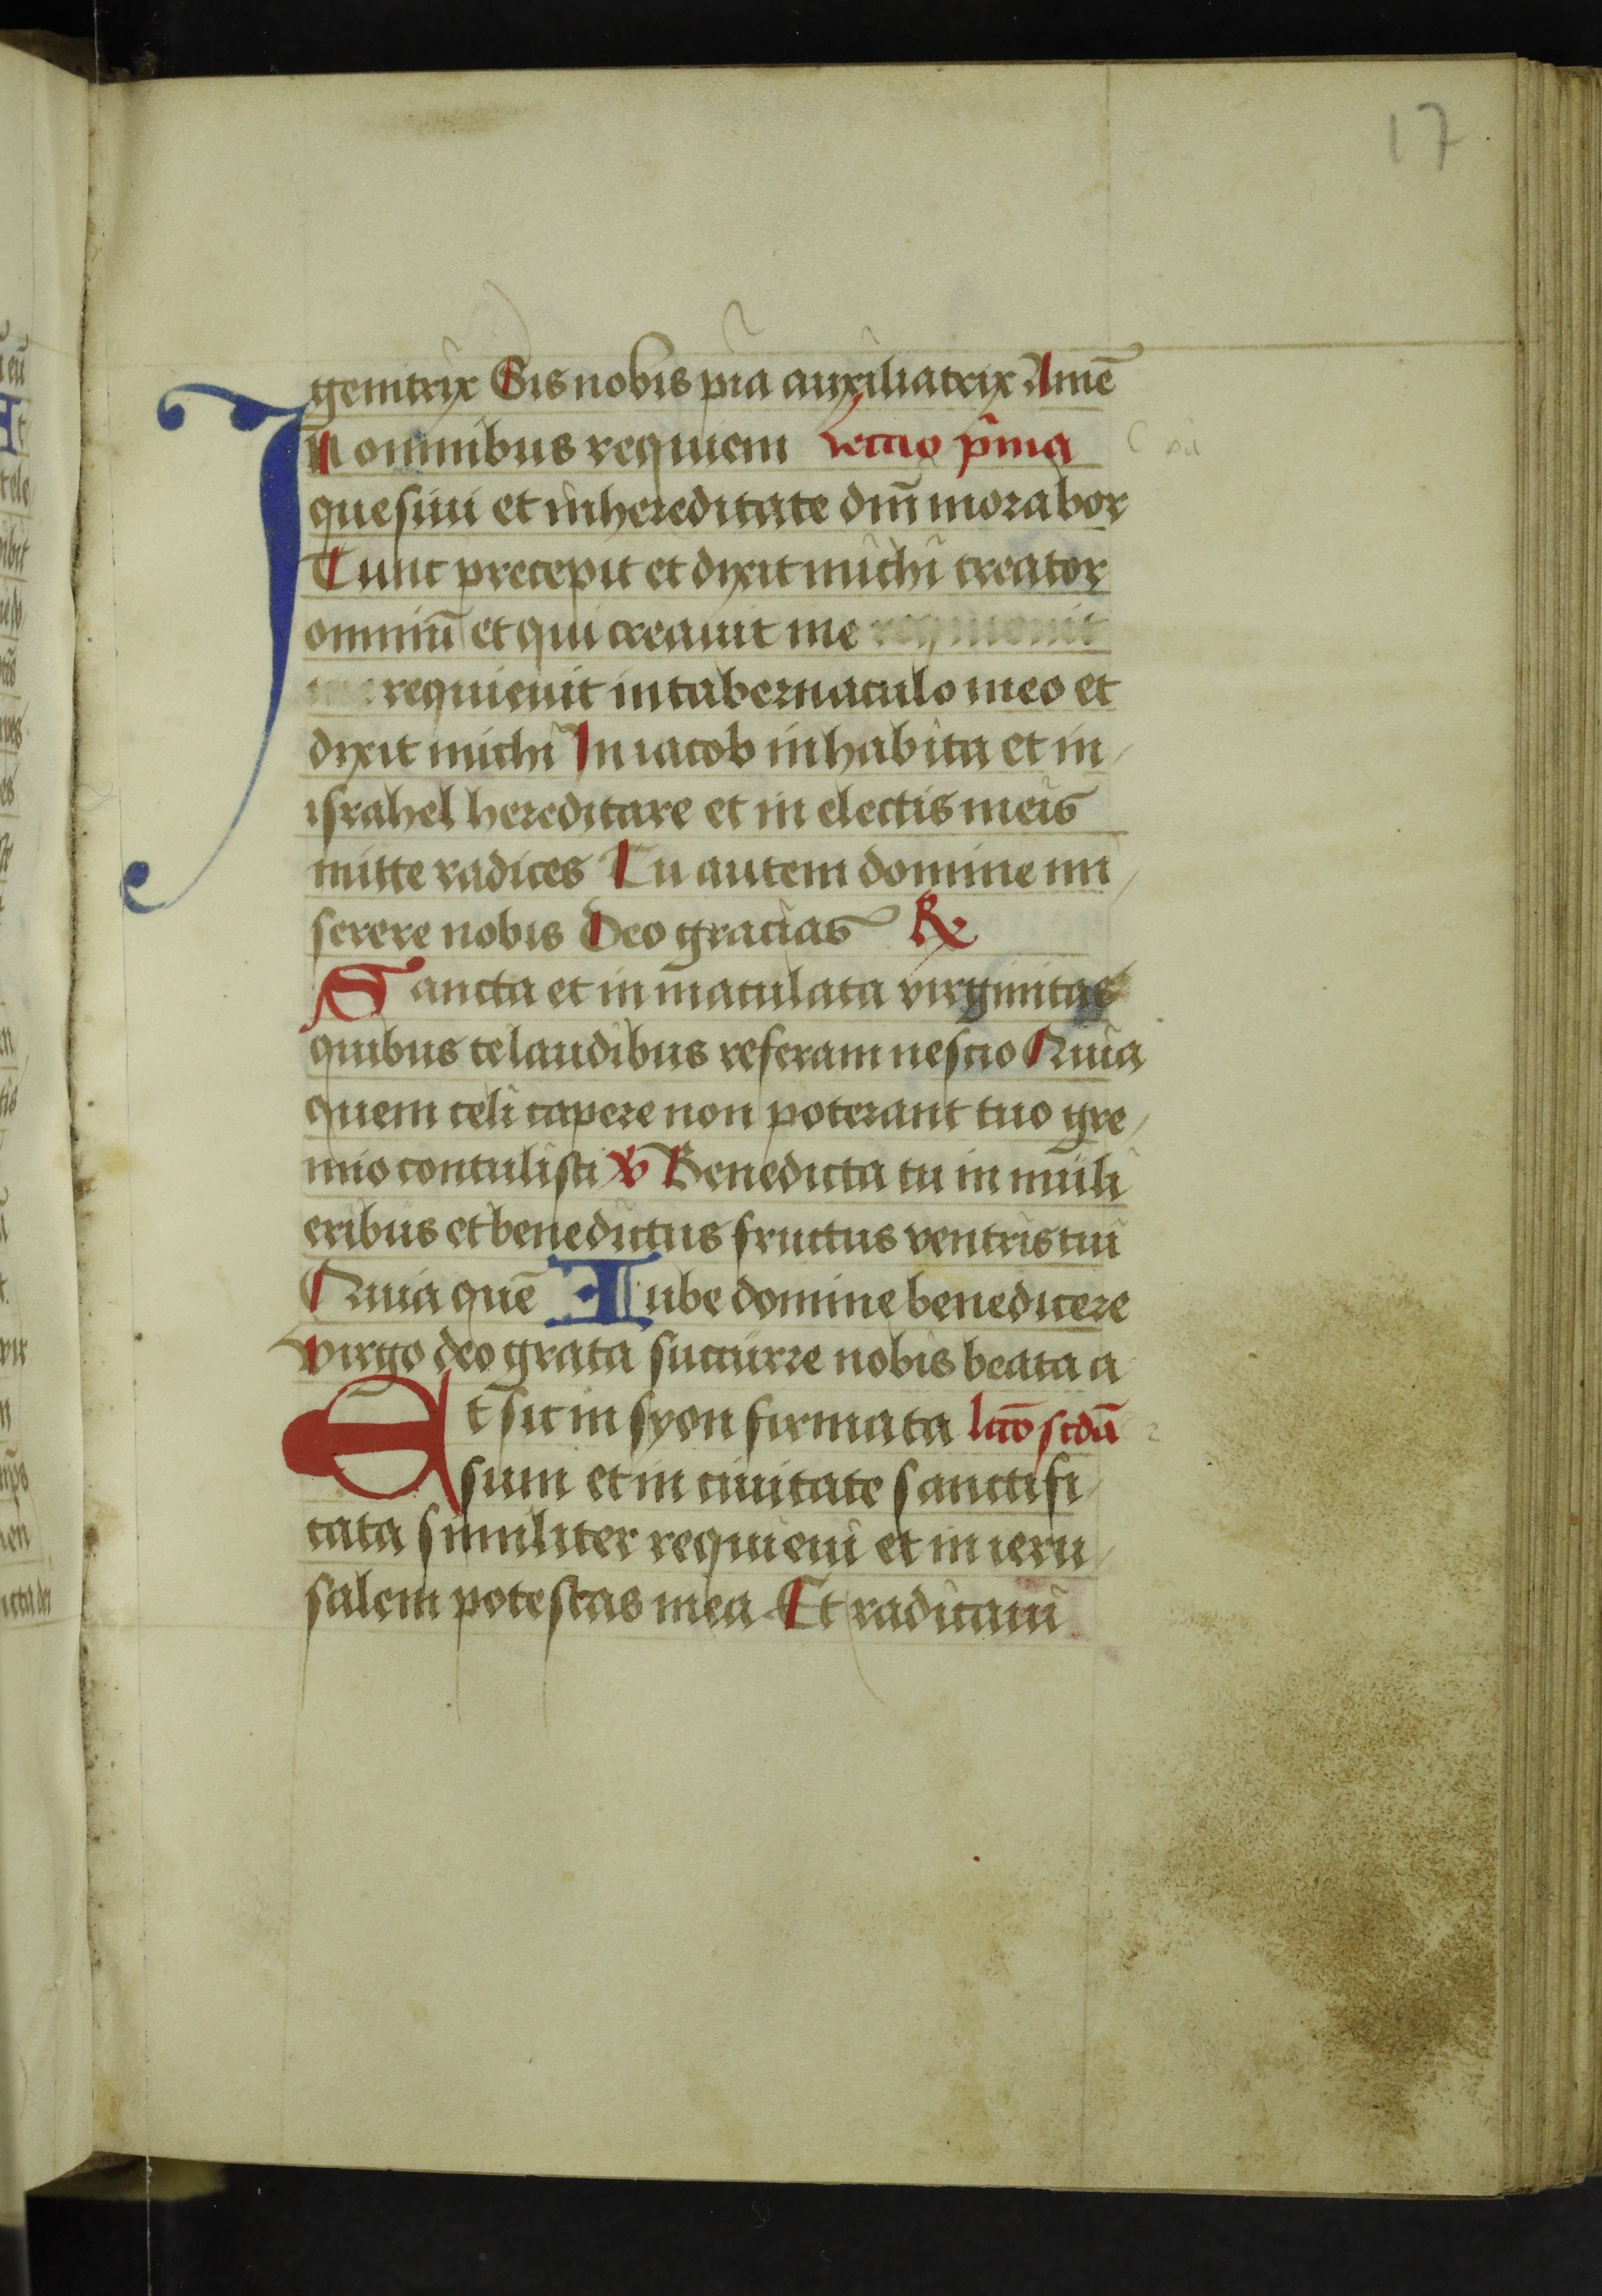 17
genitrix Sis nobis pia auxiliatrix Amē
In omnibus requiem Lectio p̄ma
quesiui et in hereditate dn̄i morabor
Tunc precepit et dixit michi creator
omniū et qui creauit me requieuit
me requieuit in tabernaculo meo et
dixit michi In iacob inhabita et in
israhel hereditare et in electis meis
mitte radices Tu autem domine mi
serere nobis Deo gracias ℟
Sancta et inmaculata virginitas
quibus te laudibus referam nescio Quia
quem celi capere non poterant tuo gre
mio contulisti ℣ Benedicta tu in muli
eribus et benedictus fructus ventris tui
Quia quē Iube domine benedicere
virgo deo grata succurre nobis beata a
Et sic in syon firmata lc̄o scdā
sum et in ciuitate sanctifi
cata similiter requieui et in ieru
salem potestas mea Et radicaui